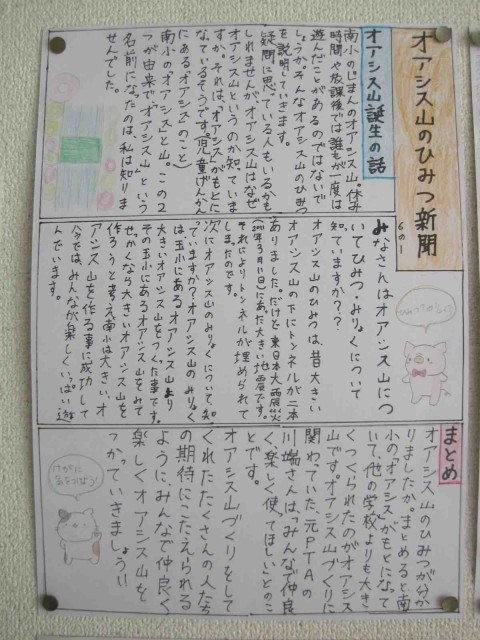 オアシス山のひみつ新聞
6の1
オアシス山誕生の話
南小のじまんのオアシス山。休み
時間や放課後では誰もが一度は
遊んだことがあるのではないで
しょうか。そんなオアシス山のひみつ
を説明していきます。
疑問に思っている人もいるかも
しれませんが、オアシス山はなぜ
オアシス山というのか知っていま
すか。それは、「オアシス」がもとに
なっているそうです。(児童げんかん
にある「オアシス」のこと)
南小の「オアシス」と山。この2
つが由来で「オアシス山」という
名前になったのは、私は知りま
せんでした。
みなさんはオアシス山につ
いてひみつ・みりょくについて
知っていますか??
オアシス山のひみつは、昔大きい
オアシス山の下にトンネルが一本
ありました。だけど東日本大震災
(2011年3月11日)にあった大きい地震です。
それによりトンネルが埋められて
しまったのです。
次にオアシス山のみりょくについて、知
っていますか?オアシス山のみりょく
は玉小にあるオアシス山より
大きいオアシス山をつくった事です。
その玉小にあるオアシス山をみて
せっかくなら大きいオアシス山を
作ろうと考え南小は大きい、オ
アシス山を作る事に成功して
今では、みんなが楽しくいっぱい遊
んでいます。
ひみつってなに?
まとめ
オアシス山のひみつが分か
りましたか。まとめると南
小の「オアシス」がもとになって
いて、他の学校よりも大き
くつくられたのがオアシス
山です。オアシス山づくりに
関わっていた、元PTAの
川端さんは、「みんなで仲良
く、楽しく使ってほしい」とのこ
とです。
オアシス山づくりをして
くれたたくさんの人たち
の期待にこたえられる
ようにみんなで仲良く
楽しくオアシス山を
つかっていきましょう!!
けがに
気をつけよう!